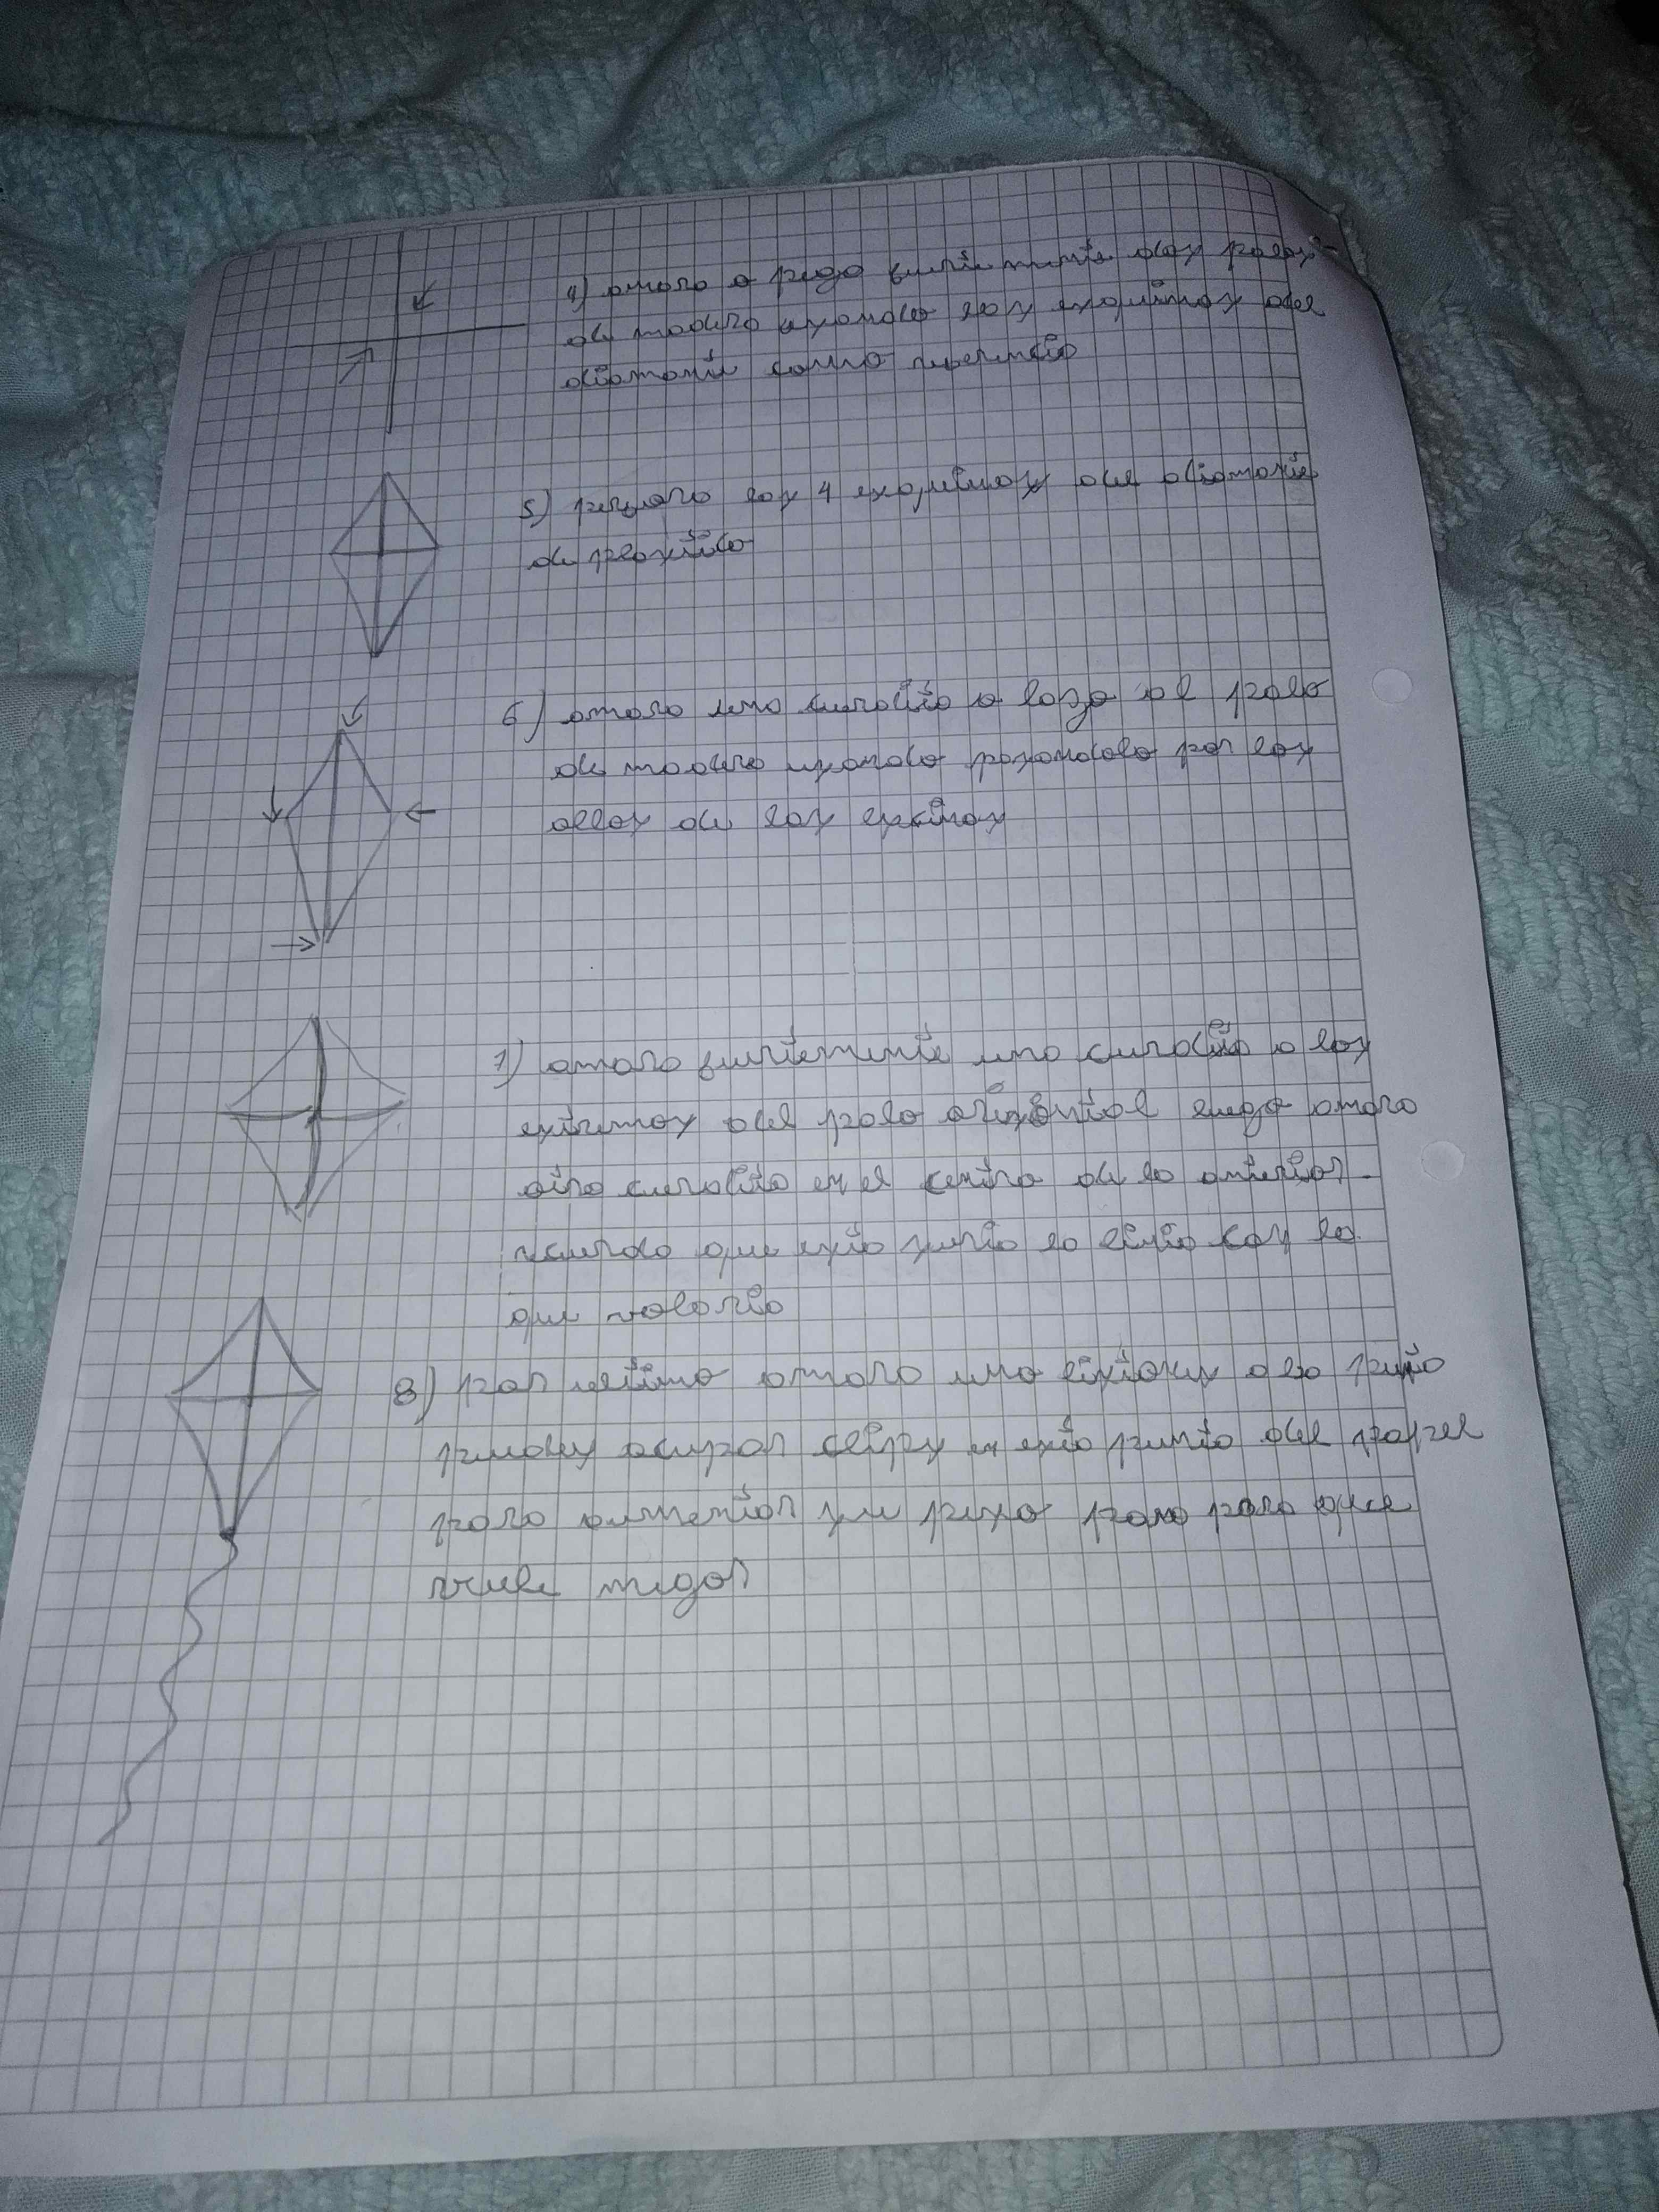 4) amara o pega fuertemente dos palos
de madera usando las esquinas del
diamante como referencia
5) perfora las 4 esquinas del diamante
de plastico
6) amara una cuerdita o laza al palo
de madera usando pasandolo por los
allos de las esquinas
7) amara fuertemente una cuerdita a los
extremos del palo orizontal luego amara
otra cuerdita en el centro de la anterior.
recuerda que esta seria la linia con la
que volaria
8) por ultimo amara una listones a la punta
puedes ocupar clips en esta punta del papel
para aumentar su peso para para que
vuele megor